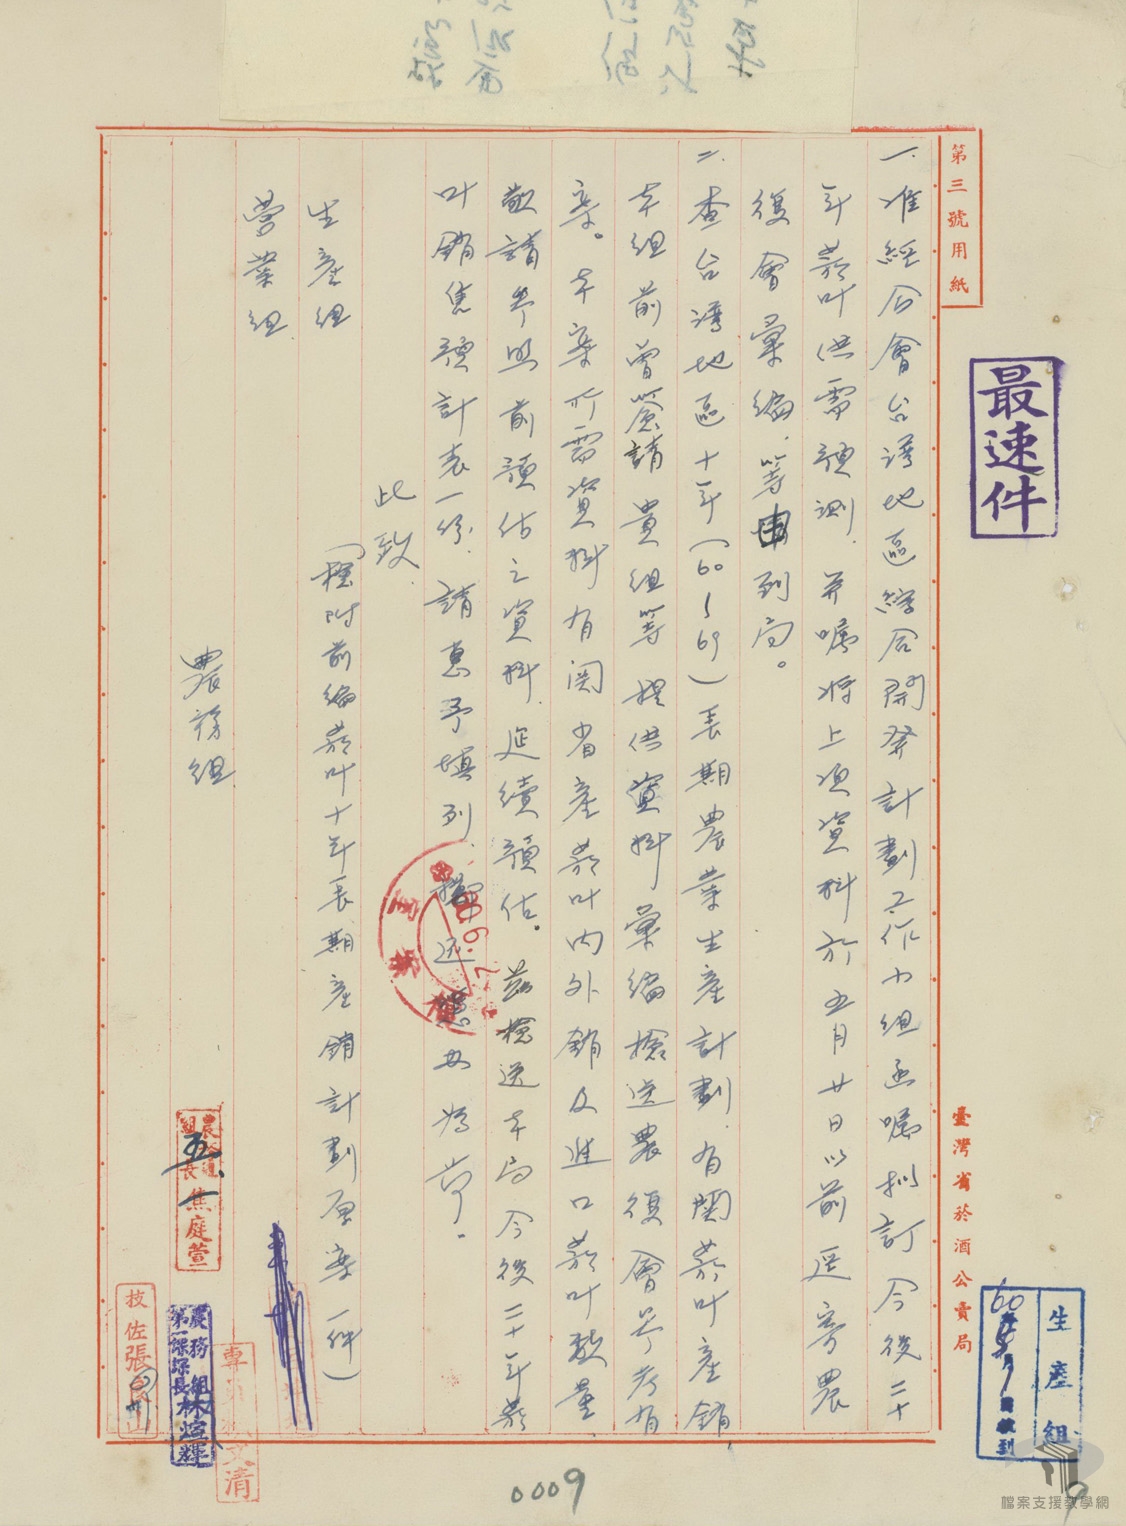 第三號用紙
臺灣省菸酒公賣局
最速件
一.准經合會台灣地區綜合開發計劃工作小組函囑擬訂今後二十
年菸叶供需預測.并囑將上項資料於五月廿日以前逕寄農
復會彙編.等由到局。
二.查台灣地區十年(60~69)長期農業生產計劃.有關菸叶產銷
本組前曾簽請貴組等提供資料彙編捡送農復會參考有
案。本案所需資料有関省產菸叶内外銷及進口菸叶数量
敬請參照前預估之資料.延續預估。茲捡送本局今後二十年菸
叶銷售預計表一份.請惠予填列.擲还過組為荷.
此致
生產組
(檢附前編菸叶十年長期產銷計劃原案一件)
營業組
農務組
農務組組長焦庭萱
五.一
農務組第一課課長林煊輝
技佐張
清
60.
生產組
60年5月1日收到
0009
9
檔案支援教學網